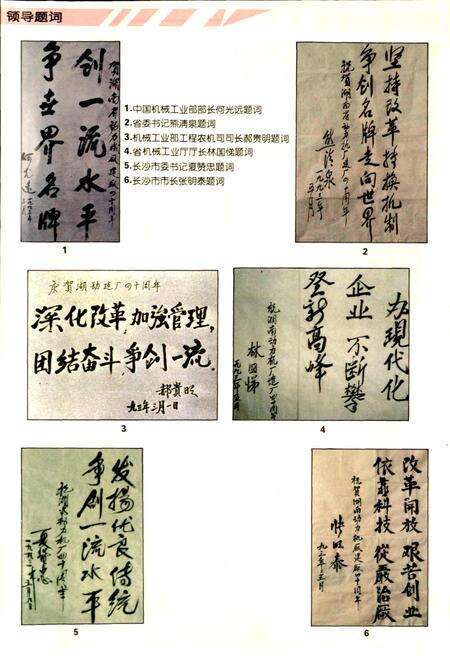 领导题词
1.中国机械工业部部长何光远题词
2.省委书记熊清泉题词
3.机械工业部工程农机司司长郝贵明题词
4.省机械工业厅厅长林国悌题词
5.长沙市委书记夏赞忠题词
6.长沙市市长张明泰题词
贺湖南省动力机厂建厂四十周年
创一流水平
争世界名牌
何光远
1
坚持改革转换机制
争创名牌走向世界
祝贺湖南省动力机厂建厂四十周年
熊清泉
2
庆贺湖动建厂四十周年
深化改革加强管理,
团结奋斗争创一流.
郝贵明
九三年三月一日
3
办现代化
企业不断攀
登新高峰
祝湖南动力机厂建厂四十周年
林国悌
4
发扬优良传统
争创一流水平
5
改革开放 艰苦创业
依靠科技 从严治厂
祝贺湖南动力机厂建厂四十周年
6